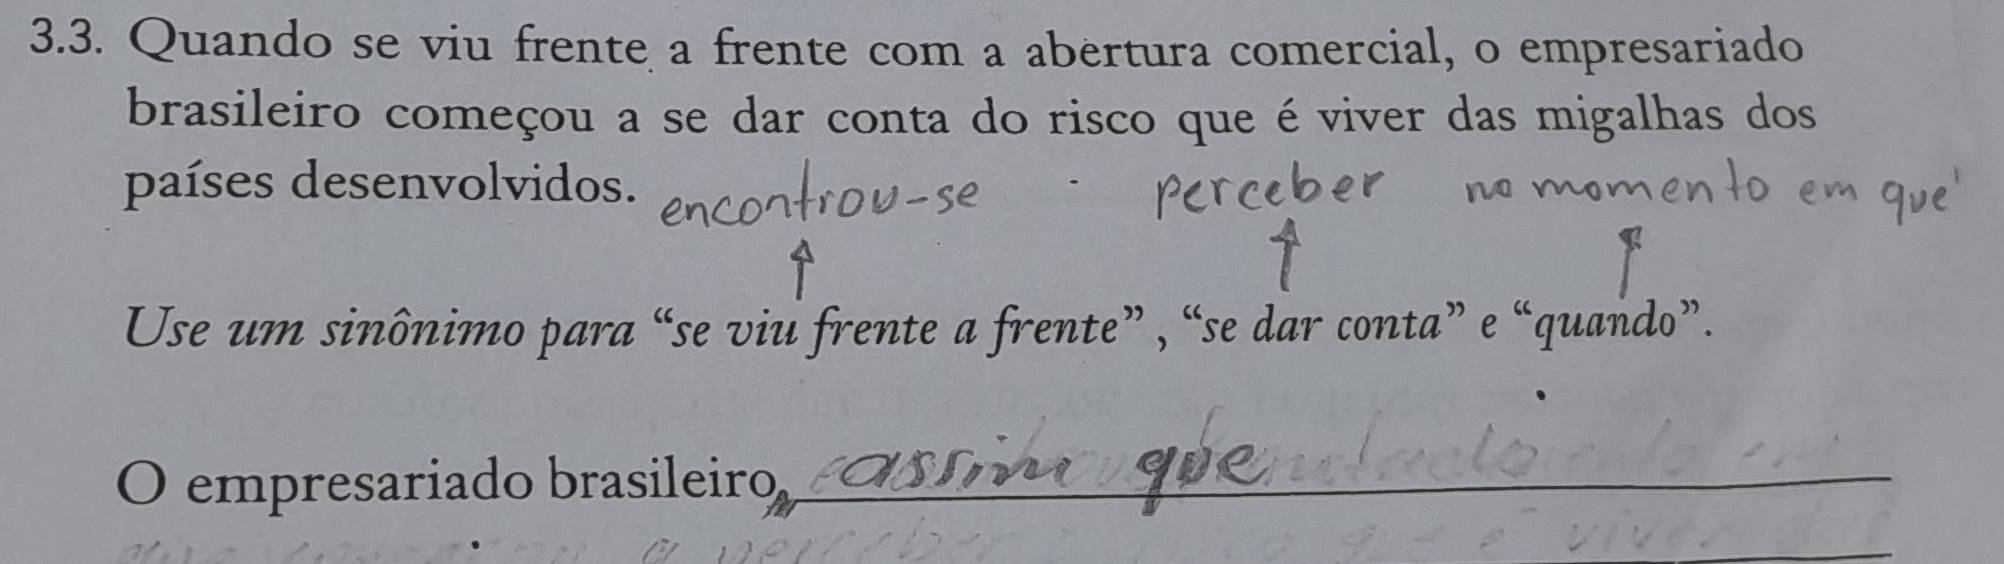 3.3. Quando se viu frente a frente com a abertura comercial, o empresariado
brasileiro começou a se dar conta do risco que é viver das migalhas dos
países desenvolvidos.
encontrou-se perceber no momento em que
Use um sinônimo para “se viu frente a frente”, “se dar conta” e “quando”.
O empresariado brasileiro, assim que
a perceber que é viver das